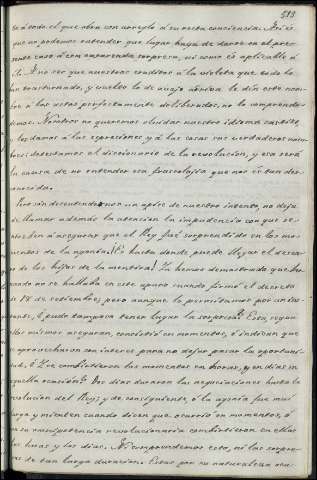 513
se á todo el que obra con arreglo á su recta conciencia. Asi es
que no podemos entender que lugar haya de darse en el pre-
sente caso á esa encarecida sorpresa, ni como es aplicable á
él. A no ser que nuestros eruditos á la violeta que todo lo
han trasturnado, y vuelto lo de abajo arriba le dén este nom-
bre á los actos perfectamente deliberados, no lo comprende-
mos. Nosotros no queremos olvidar nuestro idioma castizo,
y los damos á las espresiones y á las cosas sus verdaderos nom-
bres: detestamos el diccionario de la revolucion, y esa será
la causa de no entender esa fraseologia que nos es tan des-
conocida.
Pero sin desentendernos un apice de nuestro intento, no deja
de llamar además la atencion la impudencia con que se
atreben á asegurar que el Rey fué sorprendido en los mo-
mentos de la agonia. ¡Es hasta donde puede llegar el descaro
de los hijos de la mentira! Ya hemos demostrado que
cuando no se hallaba en este apuro cuando firmó el decreto
de 18 de setiembre; pero aunque lo permitamos por un ins-
tante, ó pudo tampoco tener lugar la sorpresa? Esta, segun
ellos mismos aseguran, consistió en momentos, ó indican que
se aprovecharon con interes para no dejar pasar la oportuni-
dad. ó Y se combirtieron los momentos en horas, y en dias en
aquella ocasion? Dos dias duraron las negociaciones hasta la
resolucion del Rey; y de consiguiente ó la agonia fue muy
larga y mienten cuando dicen que ocurrió en momentos, ó
en su consistencia revolucionaria combirtieron en ellos
las horas y los dias. Ni comprendemos esto, ni las sorpre-
sas de tan larga duracion. Estas por su naturaleza son